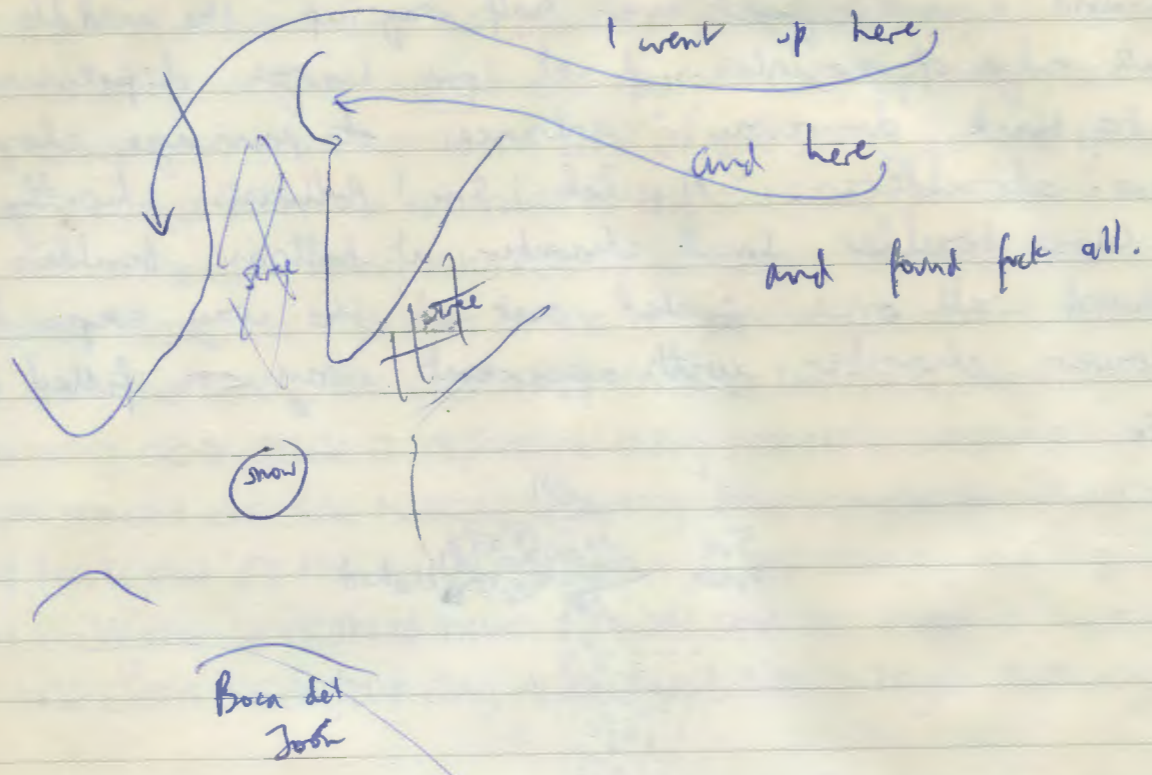 I went up here,
and here,
and found fuck all.
scree
scree
snow
Boca del
Joón